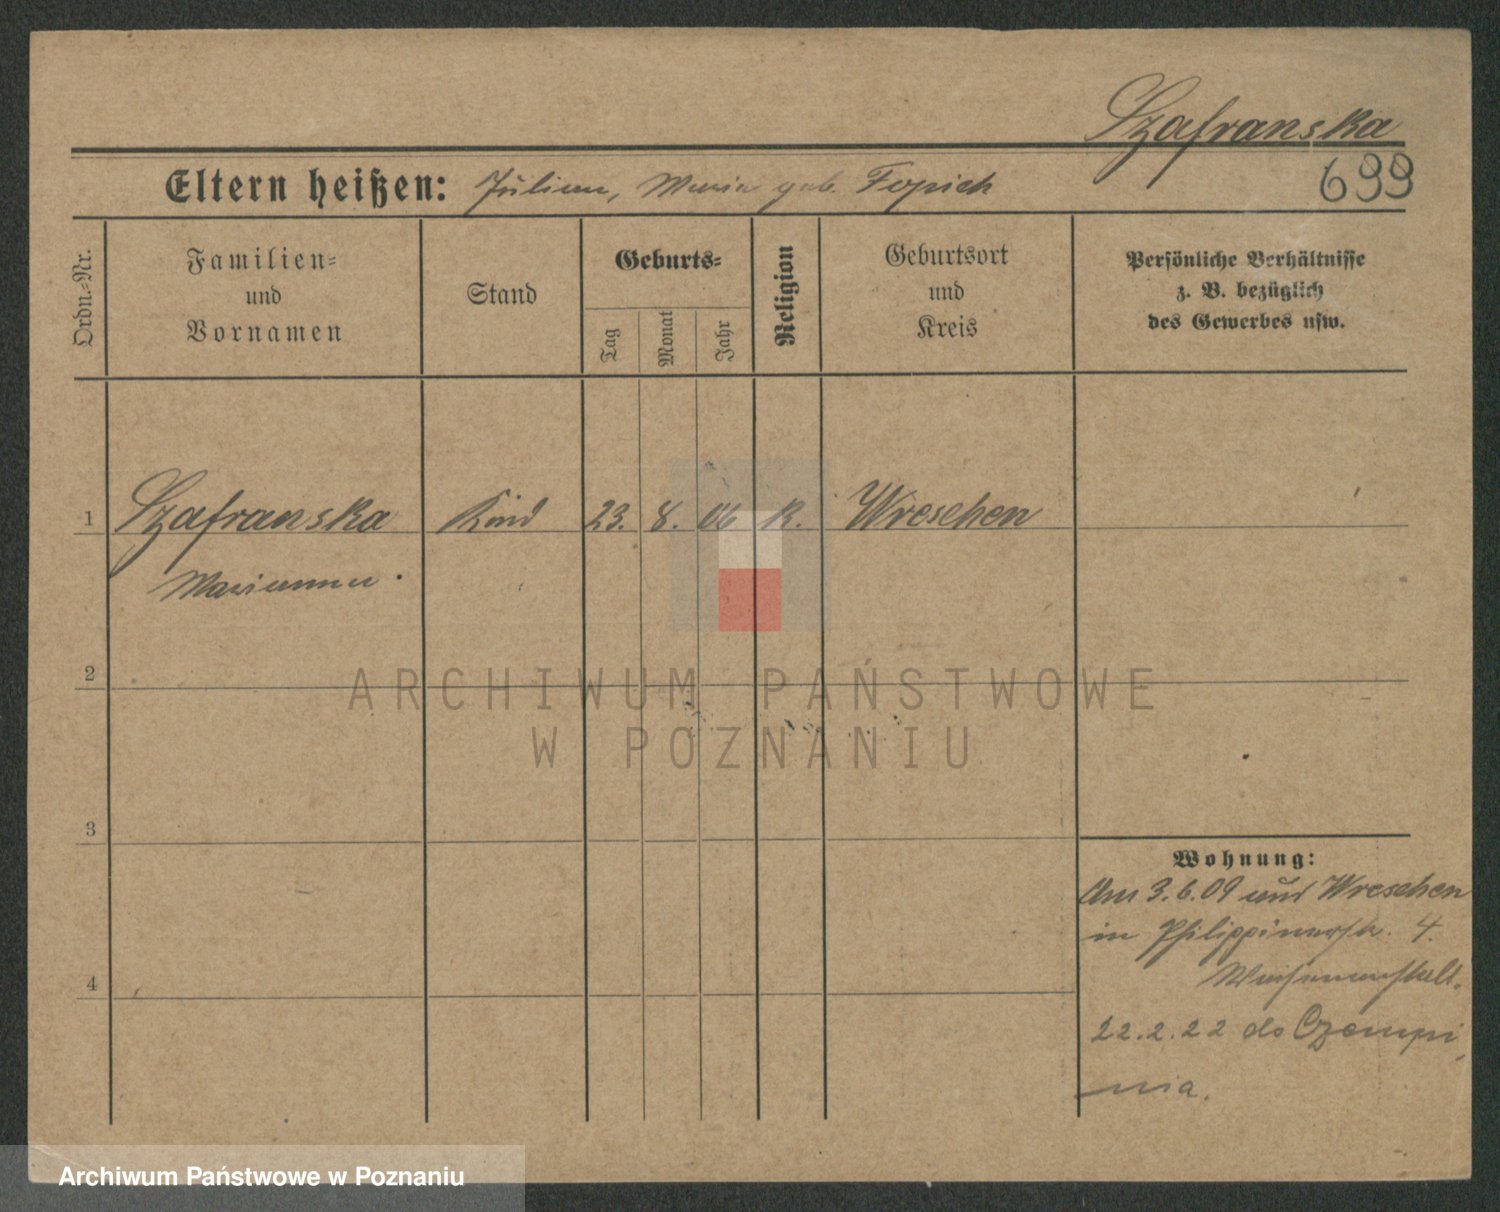 Szafranska
699
Eltern heißen: Julian, Maria geb. Topich
Ordn.-Nr.
Familien-
und
Vornamen
Stand
Geburts-
Tag
Monat
Jahr
Religion
Geburtsort
und
Kreis
Persönliche Verhältnisse
z. B. bezüglich
des Gewerbes usw.
1 Szafranska Kind 23. 8. 06 K. Wreschen
Marianna.
2
ARCHIWUM PAŃSTWOWE
W POZNANIU
3
Wohnung:
Am 3.6.09 aus Wreschen
in Philippinerstr. 4.
4
Waisenanstalt.
22.2.22 do Czempi
nia.
Archiwum Państwowe w Poznaniu